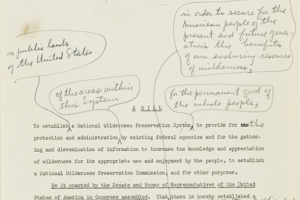 in public lands
of the United States
in order to secure for the
American people of the
present and future gener-
ations the benefits
of an enduring resource
of wilderness,
of the areas within
this System
for the permanent good of
the whole people,
A BILL
To establish a National Wilderness Preservation System, to provide for the
protection and administration by existing federal agencies and for the gather-
ing and dissemination of information to increase the knowledge and appreciation
of wilderness for its appropriate use and enjoyment by the people, to establish
a National Wilderness Preservation Commission, and for other purposes.
Be it enacted by the Senate and House of Representatives of the United
States of America in Congress assembled, That there is hereby established a